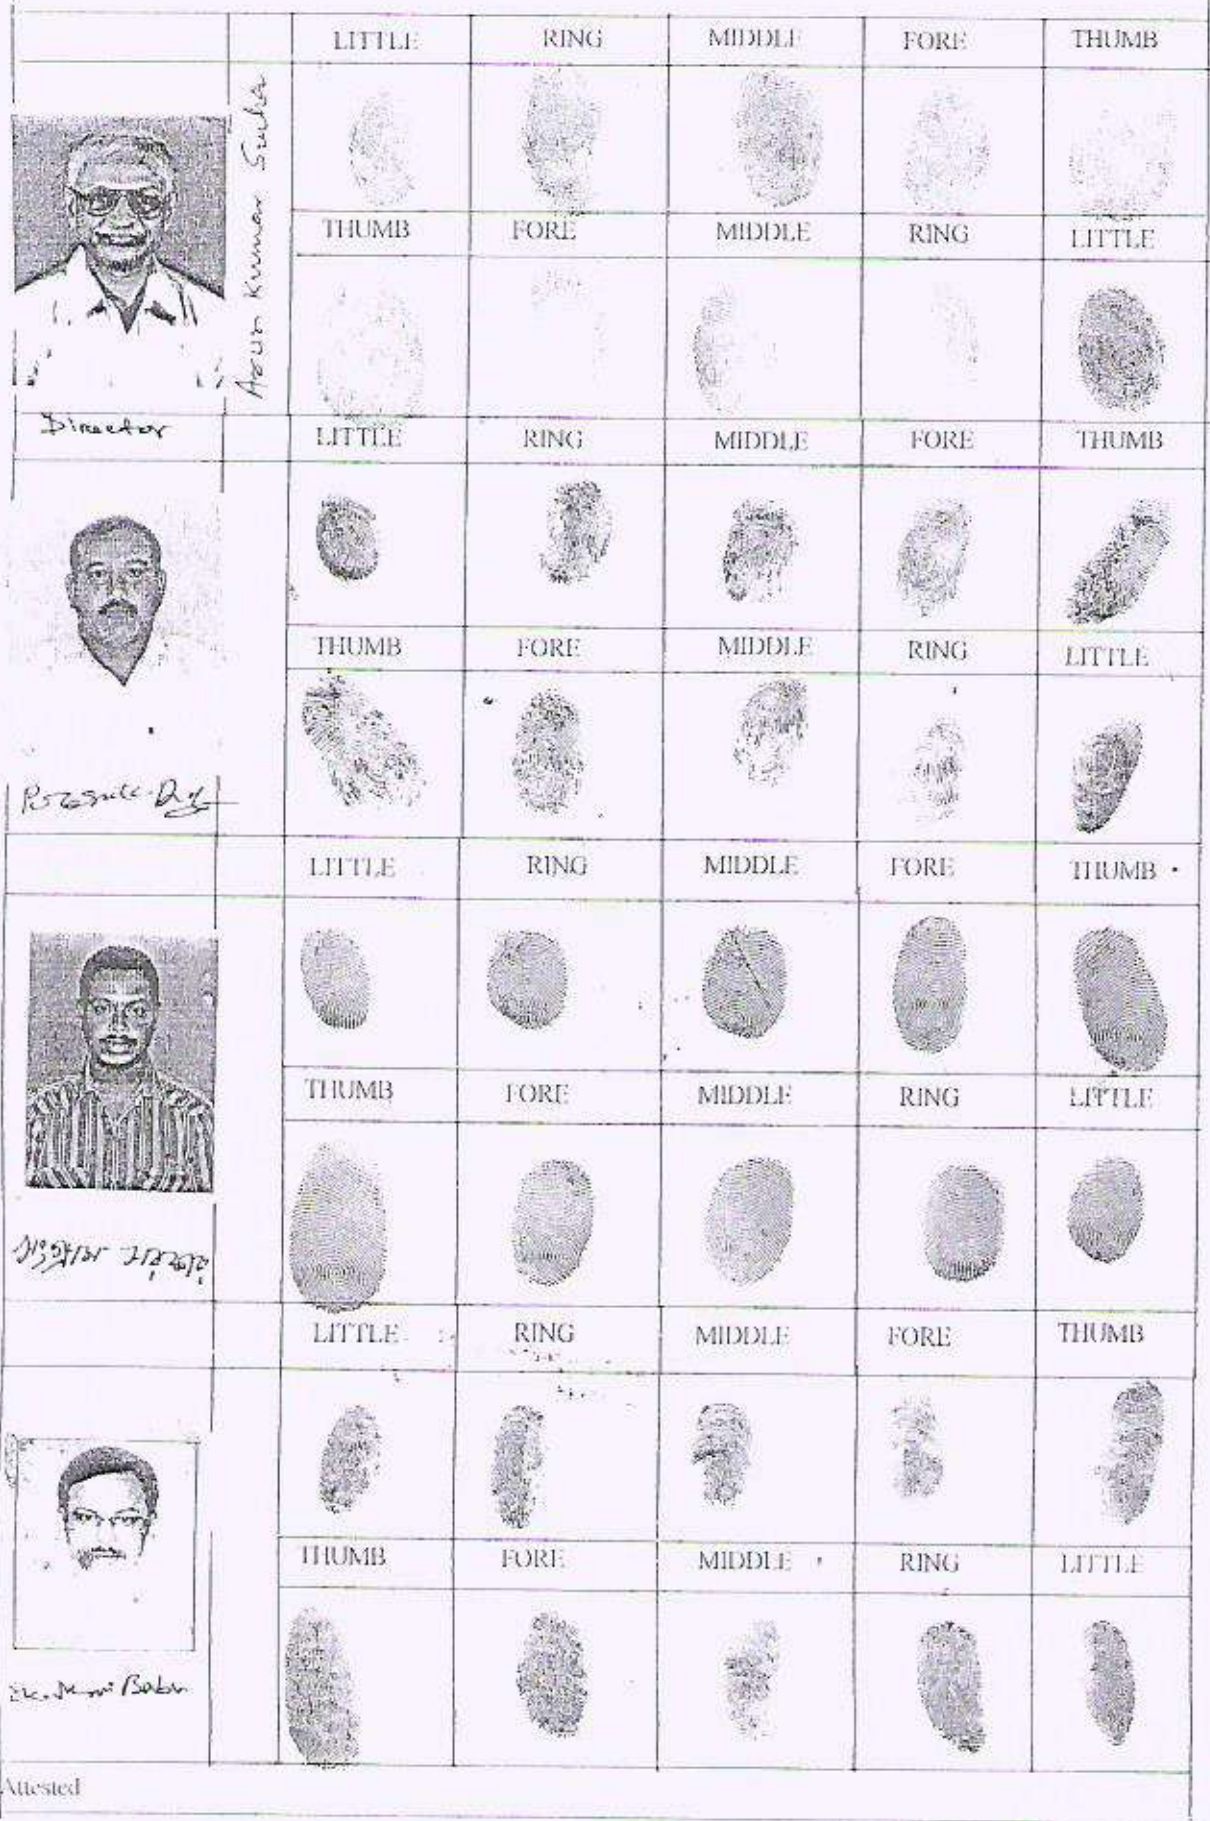 LITTLE RING MIDDLE FORE THUMB
Arun Kumar
THUMB FORE MIDDLE RING LITTLE
Director
LITTLE RING MIDDLE FORE THUMB
THUMB FORE MIDDLE RING LITTLE
LITTLE RING MIDDLE FORE THUMB
THUMB FORE MIDDLE RING LITTLE
LITTLE RING MIDDLE FORE THUMB
THUMB FORE MIDDLE RING LITTLE
Babu
Attested